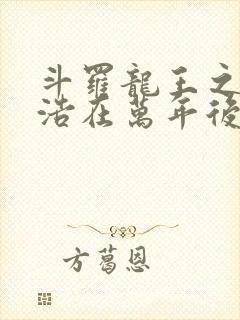 斗羅龍王之
浩在萬年後
方葛恩